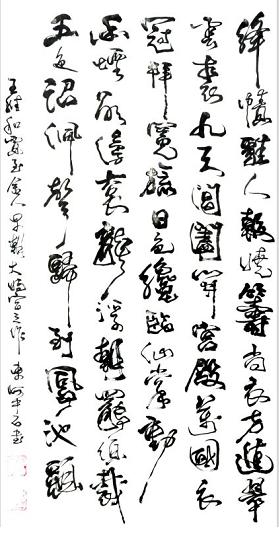 絳幘雞人報曉籌尚衣方進翠
雲裘九天閶闔開宮殿萬國衣
冠拜冕旒日色纔臨仙掌動
香煙欲傍袞龍浮朝罷須裁
五色詔佩聲歸到鳳池頭
王維和賈至舍人早朝大明宮之作 中石書